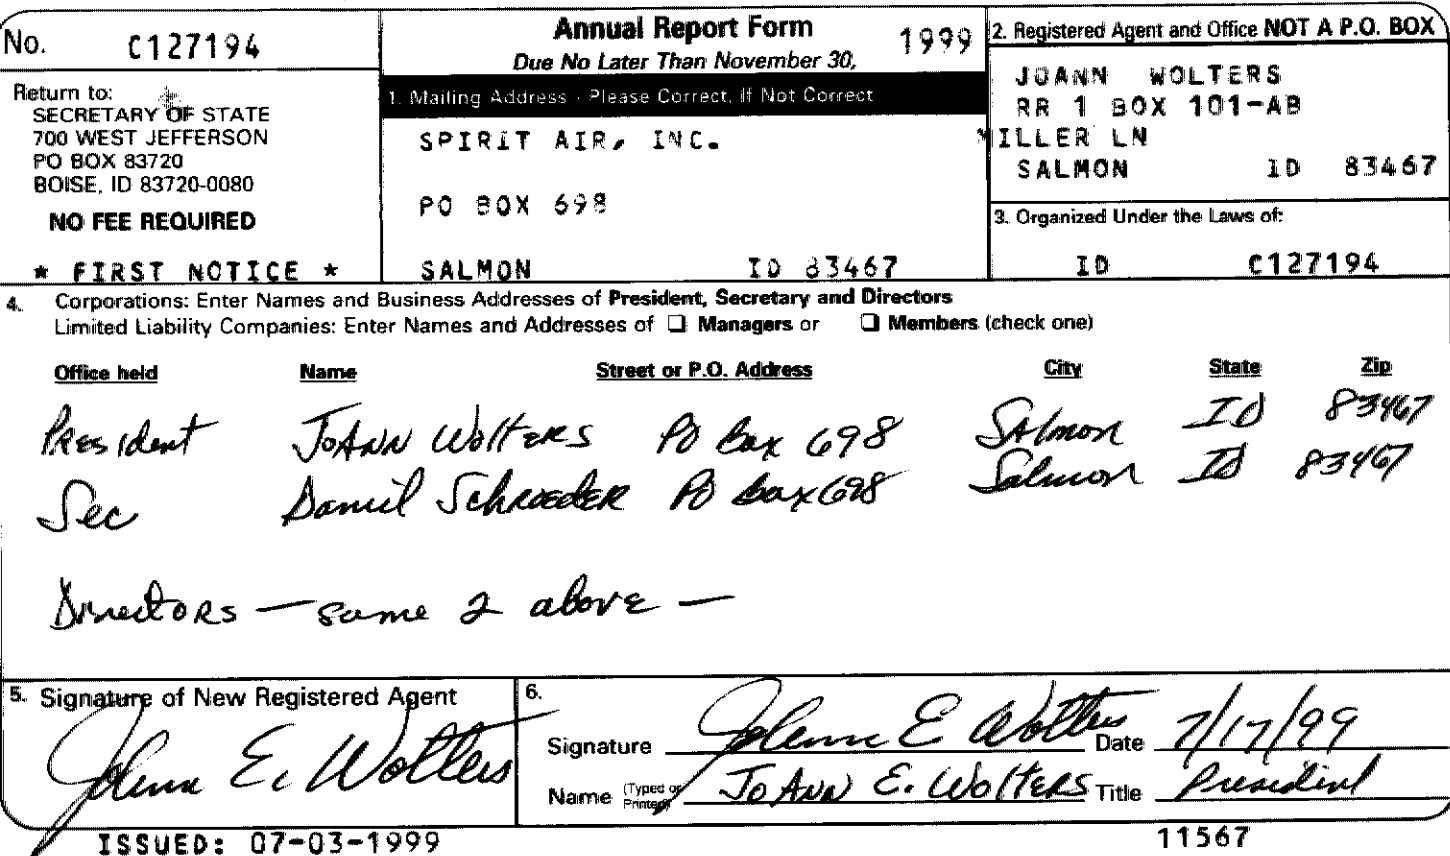 No. C127194
Return to:
SECRETARY OF STATE
700 WEST JEFFERSON
PO BOX 83720
BOISE, ID 83720-0080
NO FEE REQUIRED
* FIRST NOTICE *
Annual Report Form 1999
Due No Later Than November 30,
1. Mailing Address - Please Correct, If Not Correct
SPIRIT AIR, INC.
PO BOX 698
SALMON ID 83467
2. Registered Agent and Office NOT A P.O. BOX
JOANN WOLTERS
RR 1 BOX 101-AB
MILLER LN
SALMON ID 83467
3. Organized Under the Laws of:
ID C127194
4. Corporations: Enter Names and Business Addresses of President, Secretary and Directors
Limited Liability Companies: Enter Names and Addresses of ❑ Managers or ❑ Members (check one)
Office held Name Street or P.O. Address City State Zip
President JoAnn Wolters PO Box 698 Salmon ID 83467
Sec Daniel Schroeder PO Box 698 Salmon Id 83467
Directors — same 2 above —
5. Signature of New Registered Agent
JoAnn E. Wolters
6.
Signature JoAnn E Wolters Date 7/17/99
Name (Typed or Printed) JoAnn E. Wolters Title President
ISSUED: 07-03-1999
11567